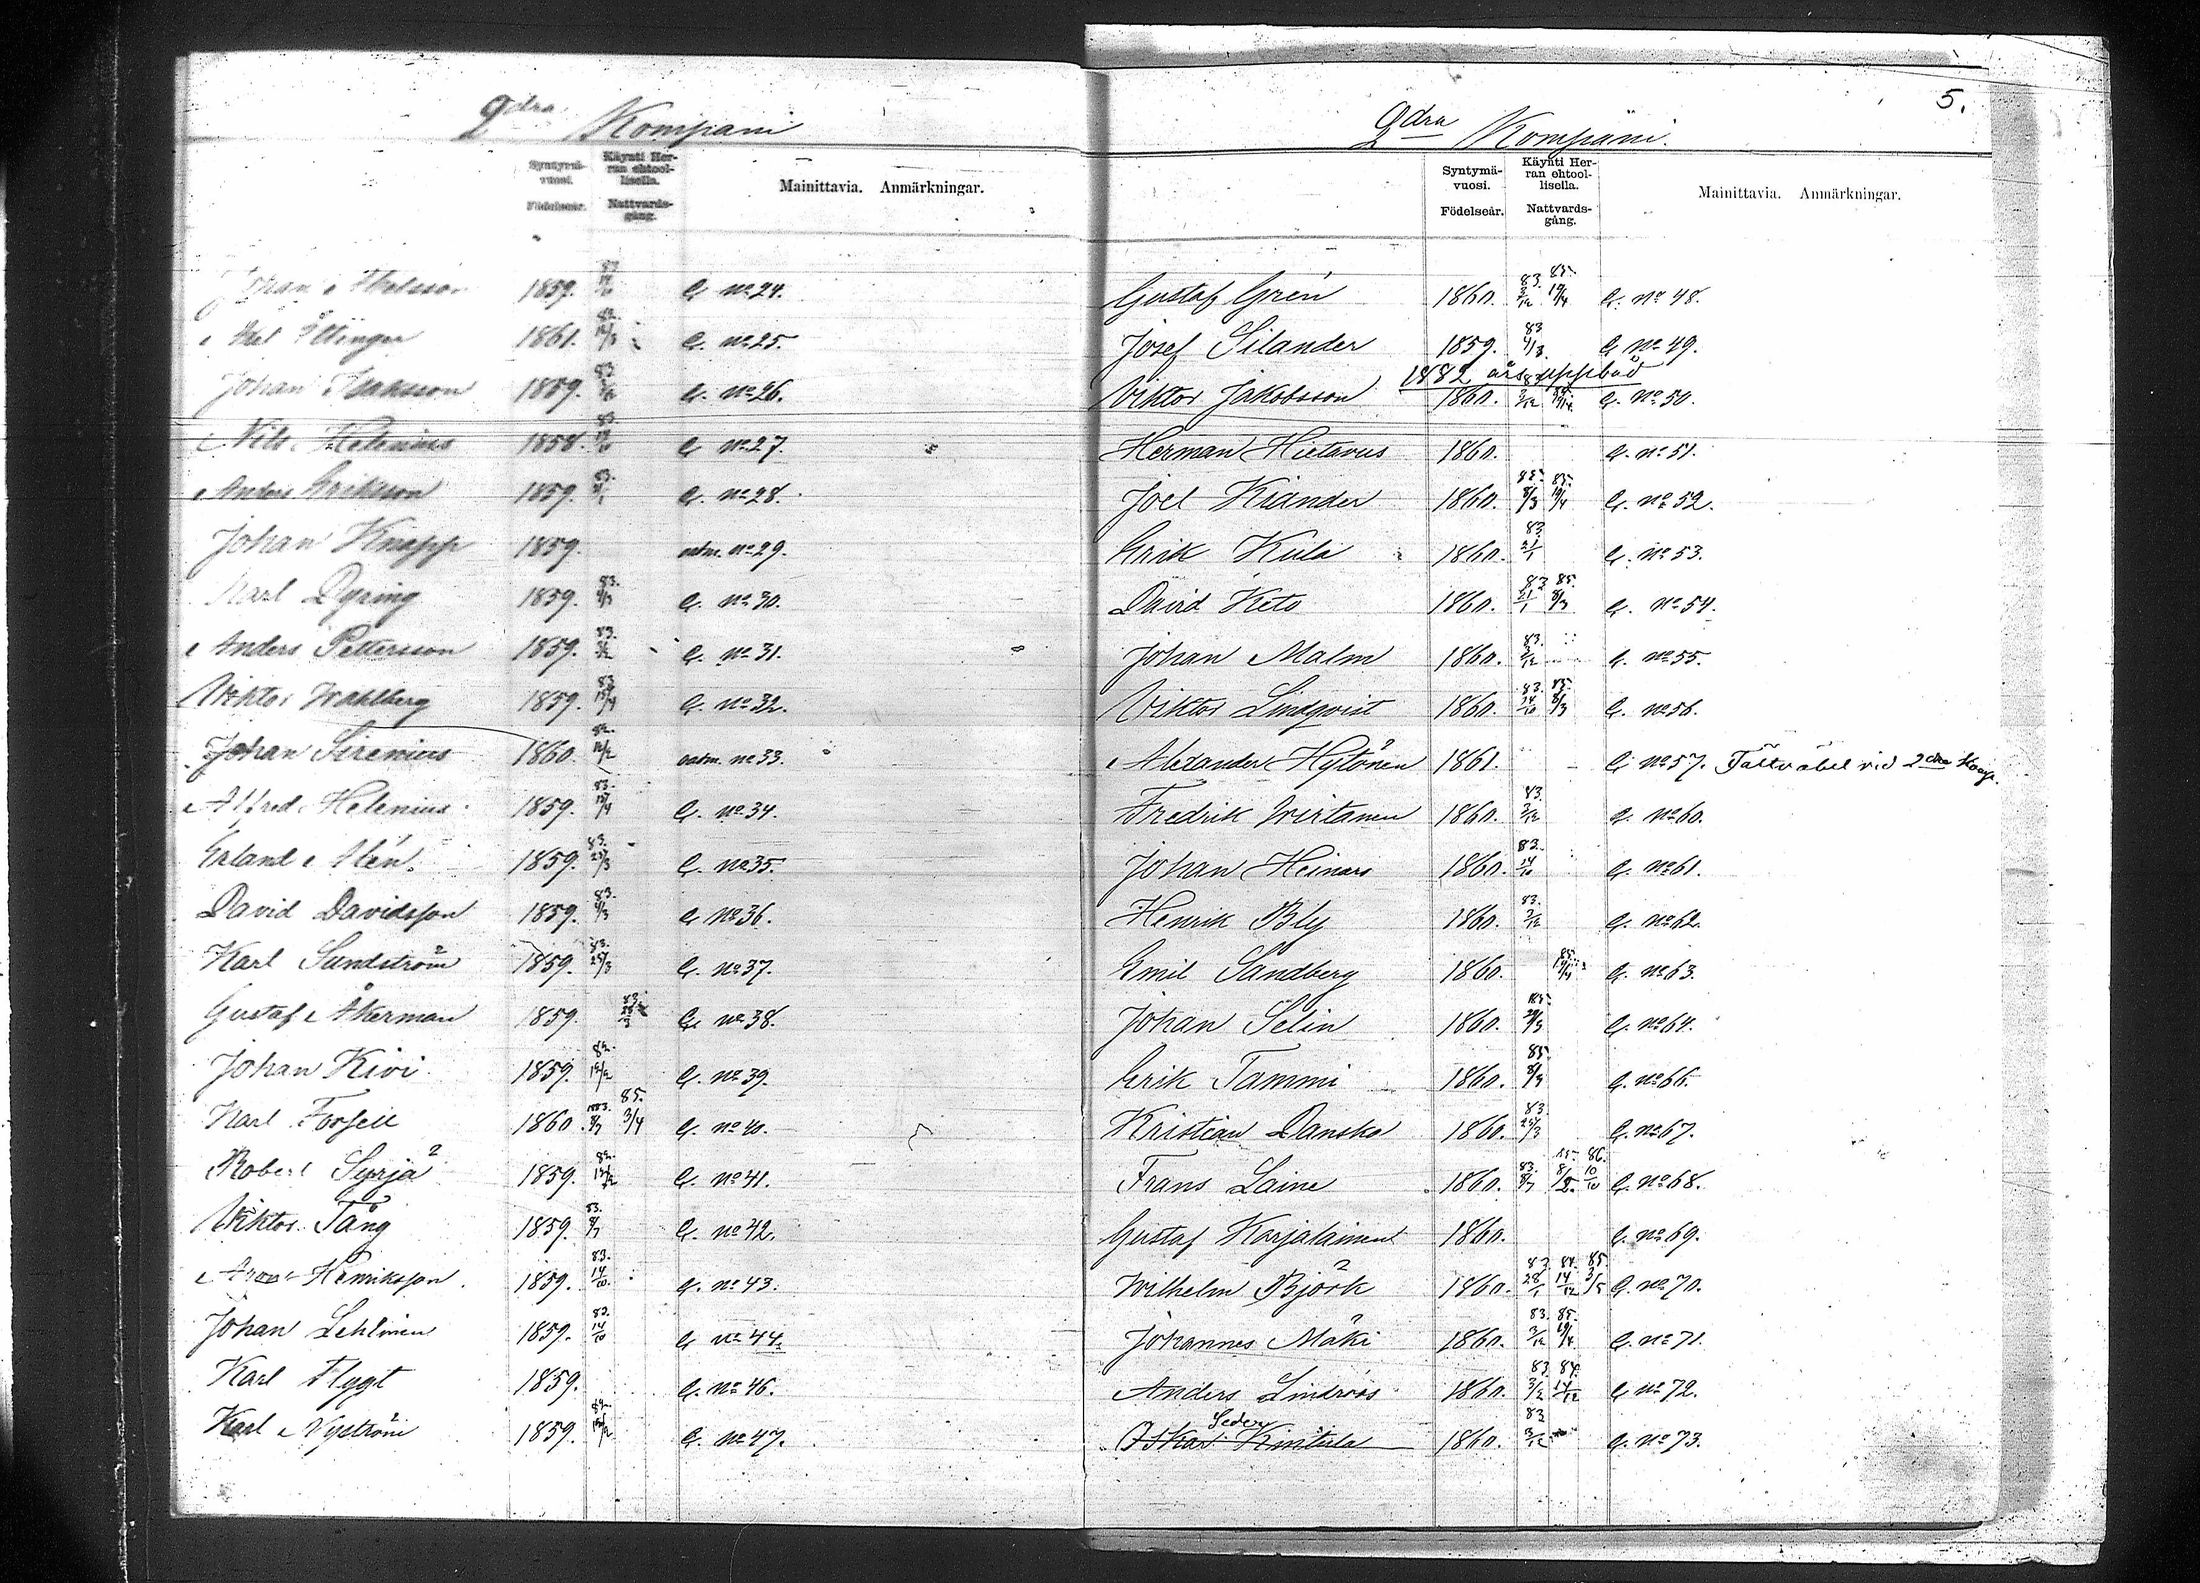 2dra Kompani
Syntymä-vuosi. Födelseår. Käynti Herran ehtoollisella. Nattvardsgång. Mainittavia. Anmärkningar.
Johan 1859. G. no 24.
1861. G. no 25.
Johan Isaksson 1859. G. no 26.
Nils Helenius 1858. G. no 27.
Anders Eriksson 1859. G. no 28.
Johan Knapp 1859. no 29.
Karl Dyring 1859. G. no 30.
Anders Pettersson 1859. G. no 31.
Viktor Wahlberg 1859. 83. 15/4 G. no 32.
Johan Sirenius 1860. no 33.
Alfred Helenius 1859. 83. 15/4 G. no 34.
Erland Alén. 1859. 83. 25/3 G. no 35.
David Davidsson 1859. 83. G. no 36.
Karl Sundström 1859. 83. 25/3 G. no 37.
Gustaf Åkerman 1859. 83. G. no 38.
Johan Kivi 1859. G. no 39.
Karl Forsell 1860. 1883. 8/7 85. 3/4 G. no 40.
Robert Syrjä 1859. G. no 41.
Viktor Tång 1859. 83. 8/7 G. no 42.
Henriksson 1859. 83. 14/10 G. no 43.
Johan Lehtinen 1859. 83. 14/10 G. no 44.
Karl Flygt 1859. G. no 46.
Karl Nyström 1859. G. no 47.
5.
2dra Kompani.
Syntymä-vuosi. Födelseår. Käynti Herran ehtoollisella. Nattvardsgång. Mainittavia. Anmärkningar.
Gustaf Grén 1860. 83. 2/12 85. 19/4 G. no 48.
Josef Silander 1859. 83 4/3. G. no 49.
1882 års uppbåd
Viktor Jakobsson 1860. G. no 50.
Herman Hietarus 1860. G. no 51.
Joel Kiander 1860. 85. 8/3 85. 19/4 G. no 52.
Erik Kulä 1860. 83. 21/1 G. no 53.
David Keto 1860. 83. 21/1 85. 8/3 G. no 54.
Johan Malm 1860. 83. 2/12 G. no 55.
Viktor Lindqvist 1860. 83. 14/10 85. 8/3 G. no 56.
Alexander Hytönen 1861. G. no 57. Fältväbel vid 2dra Komp.
Fredrik Wirtanen 1860. 83. 2/12 G. no 60.
Johan Heinars 1860. 83. 14/10 G. no 61.
Henrik Bly 1860. 83. 2/12 G. no 62.
Emil Sandberg 1860. 85. 19/4 G. no 63.
Johan Selin 1860. G. no 64.
Erik Tammi 1860. 85. 8/3 G. no 66.
Kristian Danska 1860. 83. 25/3 G. no 67.
Frans Laine 1860. 83. 8/7 86. 10/10 G. no 68.
Gustaf Karjalainen 1860. G. no 69.
Wilhelm Björk 1860. 83. 28/1 84. 14/12 85. 3/5 G. no 70.
Johannes Mäki 1860. 83. 2/12 85. 19/4 G. no 71.
Anders Lindroos 1860. 83. 84. 14/12 G. no 72.
Seder
Oskar Kintula 1860. 83 2/12 G. no 73.